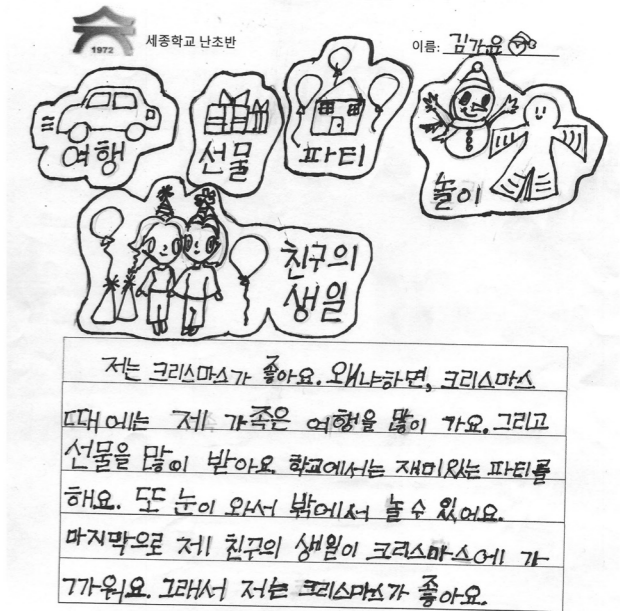 1972
세종학교 난초반
이름: 김가윤
여행
선물
파티
놀이
친구의
생일
저는 크리스마스가 좋아요. 왜냐하면, 크리스마스
때에는 제 가족은 여행을 많이 가요. 그리고
선물을 많이 받아요. 학교에서는 재미있는 파티를
해요. 또 눈이 와서 밖에서 놀 수 있어요.
마지막으로 제 친구의 생일이 크리스마스에 가
까워요. 그래서 저는 크리스마스가 좋아요.